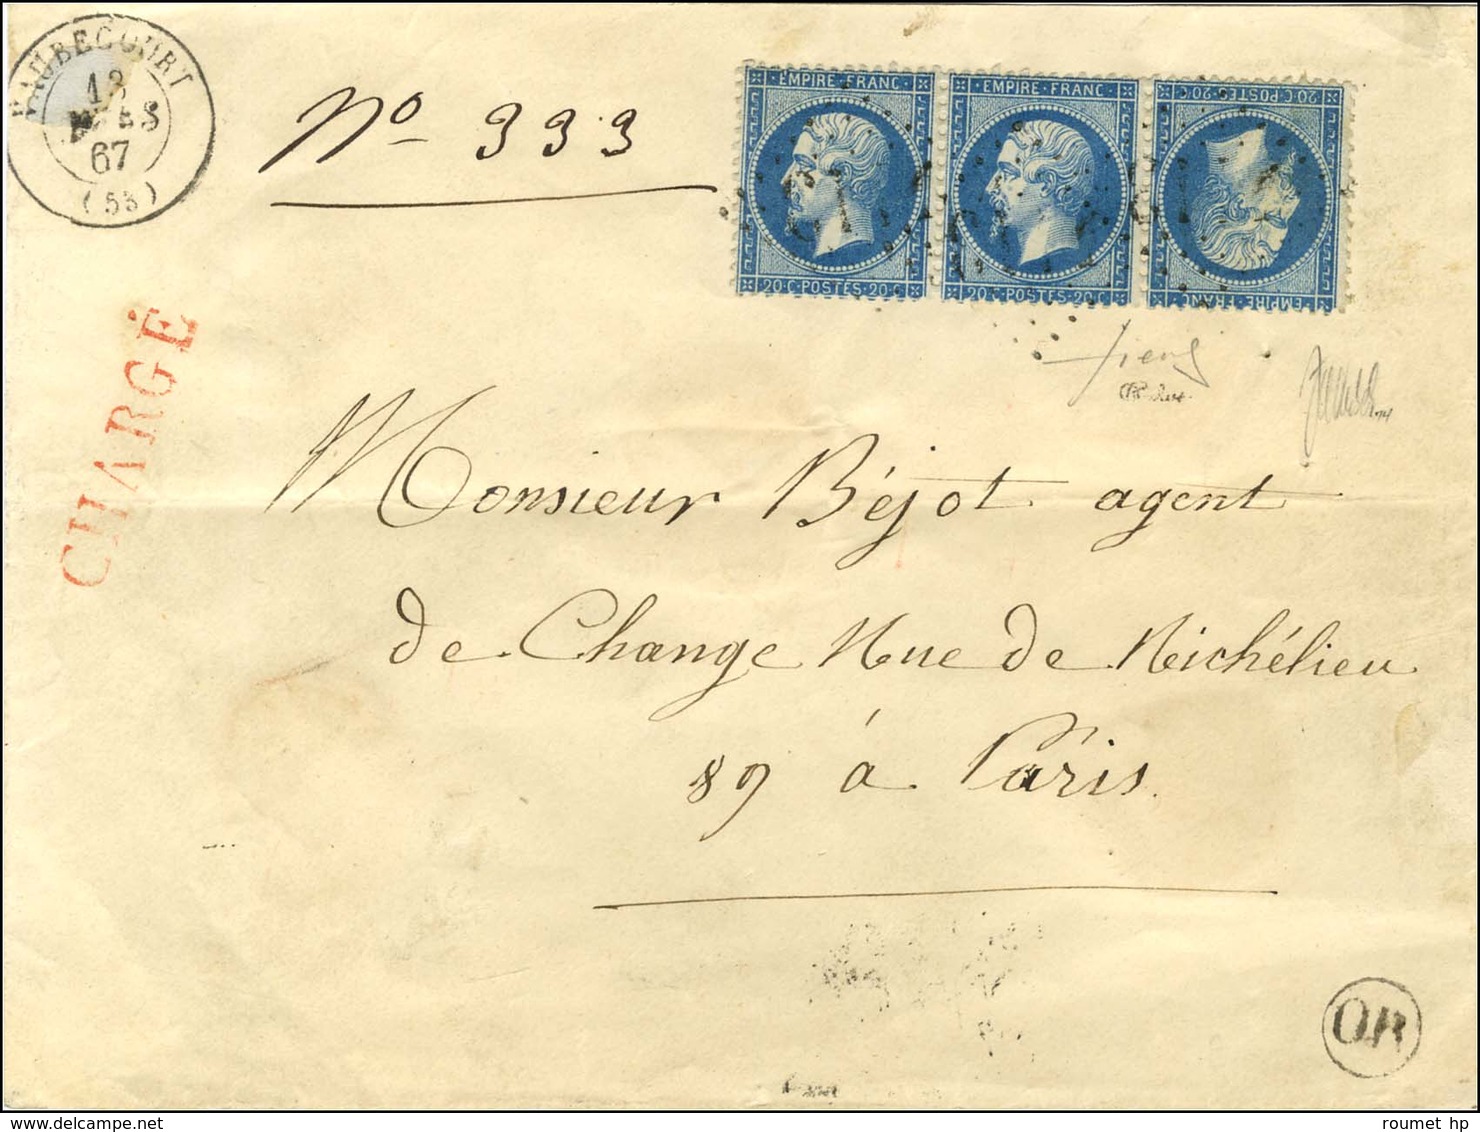 VAUBECOURT
13
MARS
67
(53)
No 333
EMPIRE·FRANC·
20·C·POSTES·20·C
EMPIRE·FRANC·
20·C·POSTES·20·C
EMPIRE·FRANC·
20·C·POSTES·20·C
CHARGÉ
Monsieur Béjot agent
de Change Rue de Richélieu
89 à Paris
OR
roumet hp